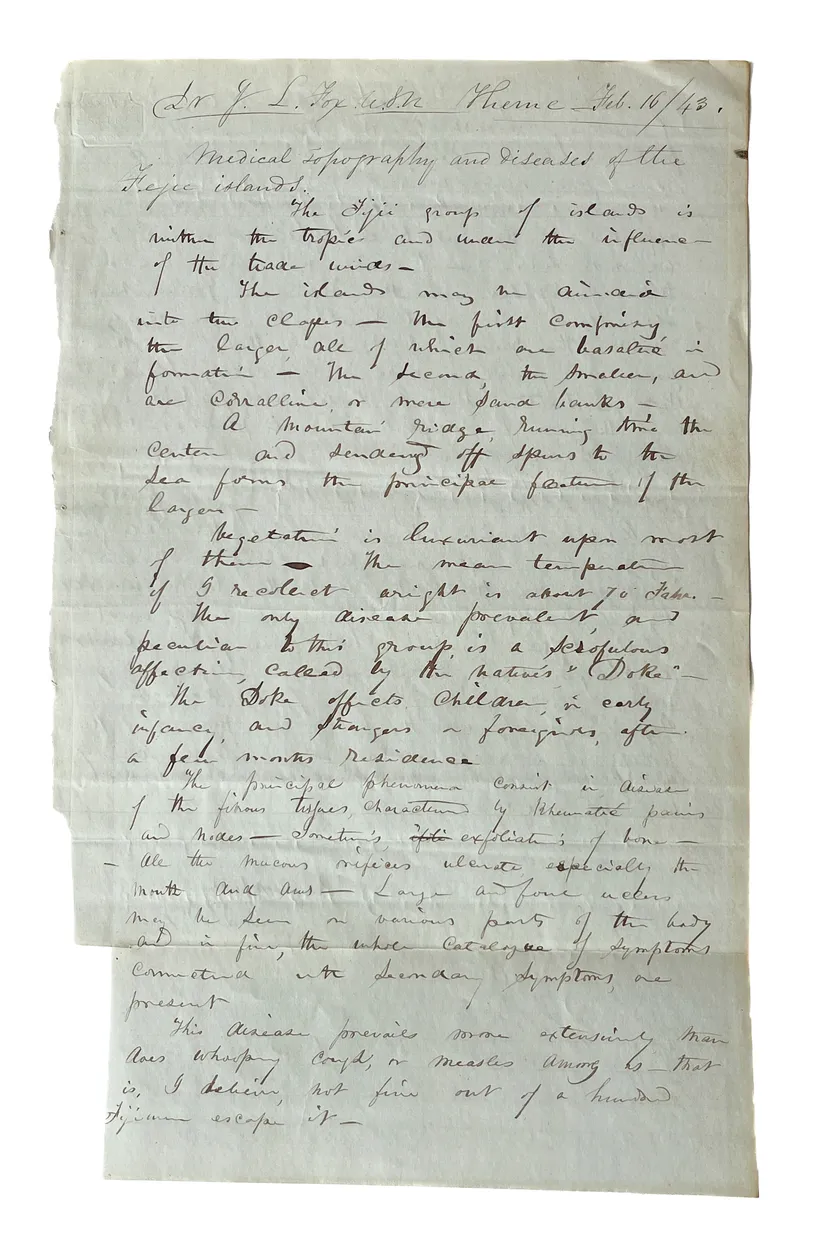 Dr J. L. Fox U.S.N Theme - Feb. 16/43.
Medical Topography and diseases of the
Fejee islands.
The Fijii group of islands is
within the tropics and under the influence
of the trade winds -
The islands may be divided
into two classes - the first comprising
the larger, all of which are basaltic in
formation - The second, the smaller, and
are corralline, or mere sand banks -
A mountain ridge, running thro the
center and sending off spurs to the
sea forms the principal feature of the
larger -
Vegetation is luxuriant upon most
of them - The mean temperature
if I recolect aright is about 70 Fahr. -
The only disease prevalent, and
peculiar to this group, is a scrofulous
affection, called by the natives "Doke" -
The Doke affects children, in early
infancy, and strangers or foreigners, after
a few months residence
The principal phenomena consist in disease
of the fibrous tissues, characterized by Rheumatic pains
and nodes - sometimes, exfoliations of bone -
- All the mucous orifices ulcerate especially the
mouth and anus - Large and foul ulcers
may be seen on various parts of the body
and in fine, the whole catalogue of symptoms
connected with secondary symptoms, are
present
This disease prevails more extensively than
does whooping cough, or measles among us - that
is, I believe, not five out of a hundred
Fijiian escape it -